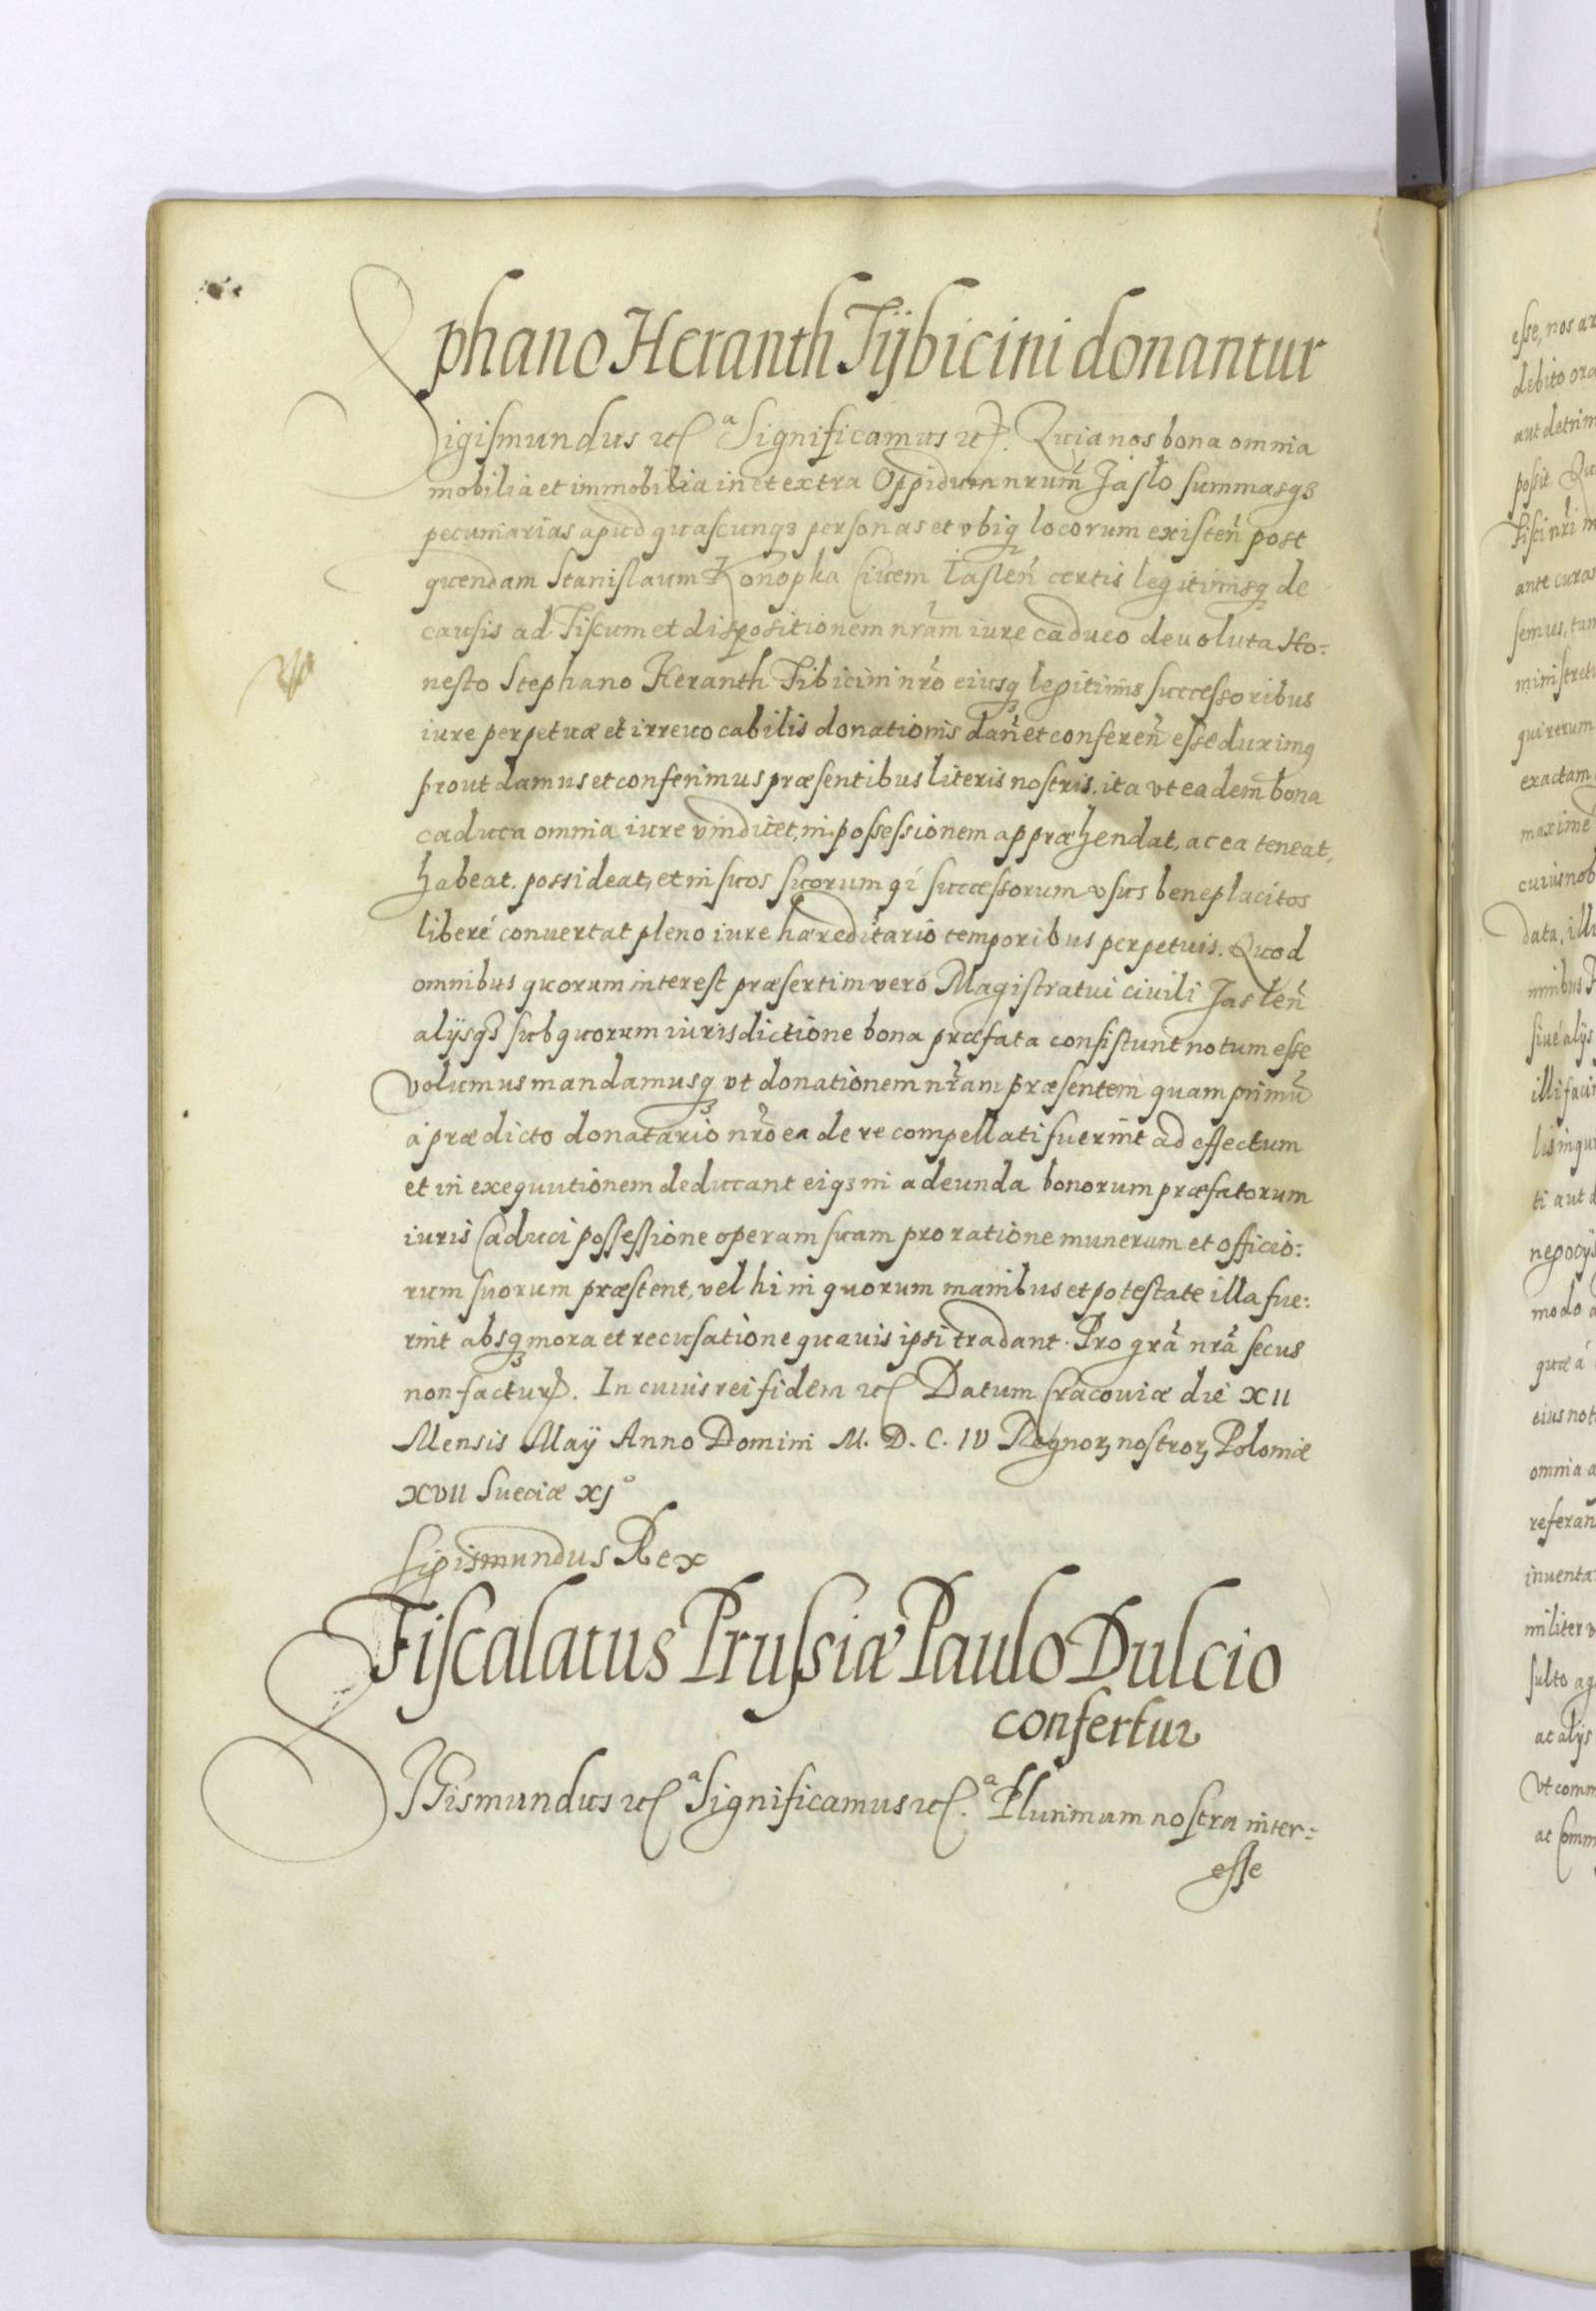 phano Heranth Tijbicini donantur
Sigismundus etc. Significamus etc. Quia nos bona omnia
mobilia et immobilia in et extra Oppidum nrum̃ Jasło summasqȝ
pecuniarias apud quascunqȝ personas et vbiqȝ locorum existeñ post
quendam Stanislaum Konopka Ciuem Iasłeñ certis legitimisqȝ de
causis ad Fiscum et dispositionem nrãm iure caduco deuoluta Ho:
nesto Stephano Heranth Tibicini nrõ eiusqȝ legitimis successoribus
iure perpetuæ et irreuocabilis donationis dañ et confereñ esse duximq
prout damus et conferimus præsentibus literis nostris. ita vt eadem bona
caduca omnia iure vindicet, in possessionem appræhendat, ac ea teneat,
habeat. possideat, et in suos suorum qȝ successorum vsus beneplacitos
liberé conuertat pleno iure hæreditario temporibus perpetuis. Quod
omnibus quorum interest præsertim veró Magistratui ciuili Jasłeñ
alijsqȝ sub quorum iurisdictione bona præfata consistunt notum esse
volumus mandamusqȝ vt donationem nrãm præsentem quam primũ
á prædicto donatario nrõ ea de re compellati fuerint ad effectum
et in exequutionem deducant eiqȝ in adeunda bonorum præfatorum
iuris Caduci possessione operam suam pro ratione munerum et officio:
rum suorum præstent, vel hi in quorum manibus et potestate illa fue:
rint absqȝ mora et recusatione quauis ipsi tradant. Pro grã nrã secus
non factuꝝ. In cuius rei fidem etc Datum Cracouiæ die XII
Mensis Maÿ Anno Domini M. D. C. IV Regnoꝝ nostroꝝ Poloniæ
XVII Sueciæ XJ°
Sigismundus Rex
Fiscalatus Prussiæ Paulo Dulcio
confertur
Sigismundus etc Significamus etc. Plurimum nostra inter:
esse